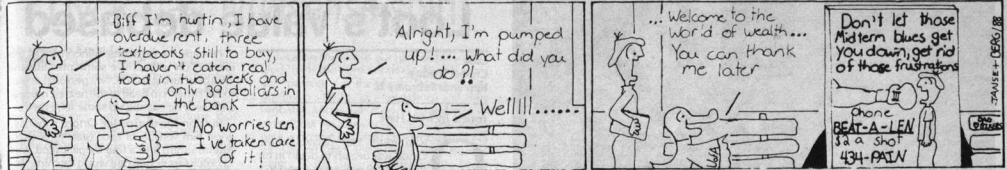 Biff I'm hurtin, I have
overdue rent, three
textbooks still to buy,
I haven't eaten real
food in two weeks and
only 39 dollars in
the bank
No worries Len
I've taken care
of it!
UofA
Alright, I'm pumped
up!... What did you
do?!
Wellllll......
...Welcome to the
World of wealth...
You can thank
me later
UofA
Don't let those
Midterm blues get
you down, get rid
of those frustrations
Phone
BEAT-A-LEN
$2 a shot
434-PAIN
JANSE + DERG/88